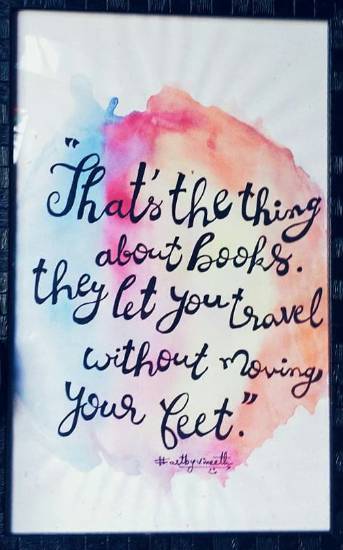 "That's the thing
about books.
they let you travel
without moving
your feet."
#artbyvineeth